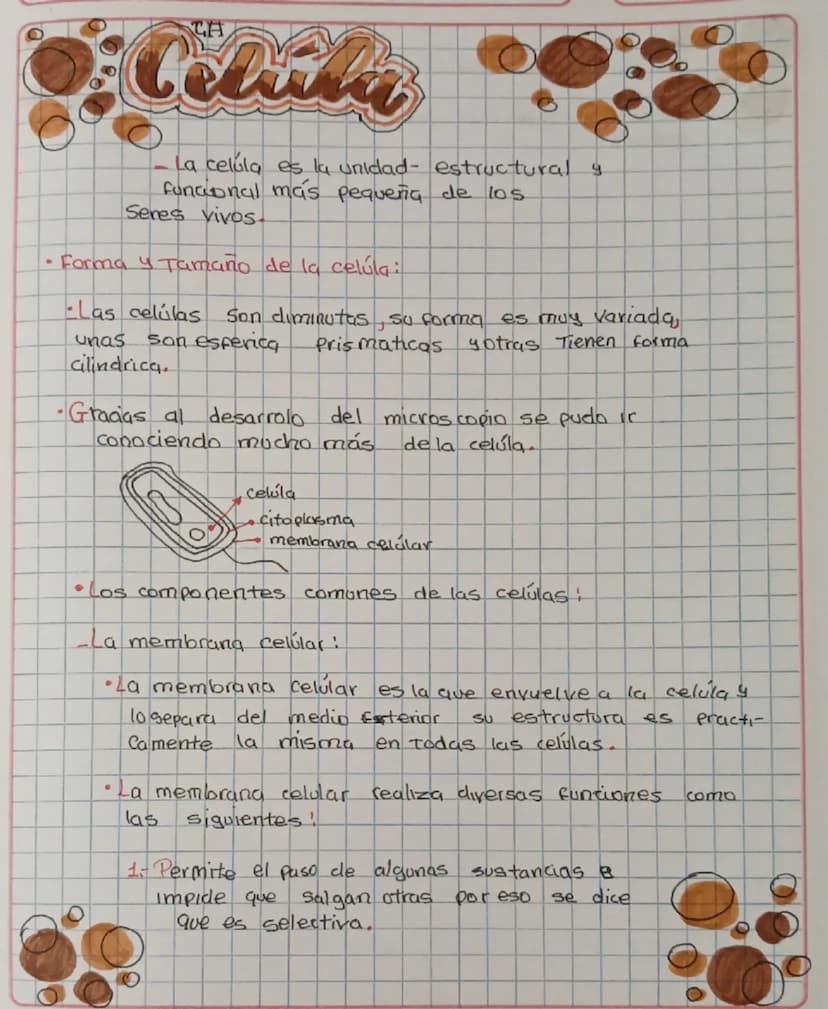 T.H
Celúla
- La celúla es la unidad- estructural y
funcional más pequeña de los
seres vivos.
• Forma y Tamaño de la celúla:
• Las celúlas son diminutas, su forma es muy variada,
unas son esferica prismaticas y otras Tienen forma
cilindrica.
• Gracias al desarrolo del microscopio se pudo ir
conociendo mucho más de la celúla.
celúla
citoplasma
membrana celúlar
• Los componentes comones de las celúlas:
- La membrana celúlar:
• La membrana celúlar es la que envuelve a la celúla y
lo separa del medio Exterior su estructura es practi-
camente la misma en todas las celúlas.
• La membrana celular realiza diversas funciones como
las siguientes:
1.- Permite el paso de algunas sustancias e
impide que salgan otras por eso se dice
que es selectiva.